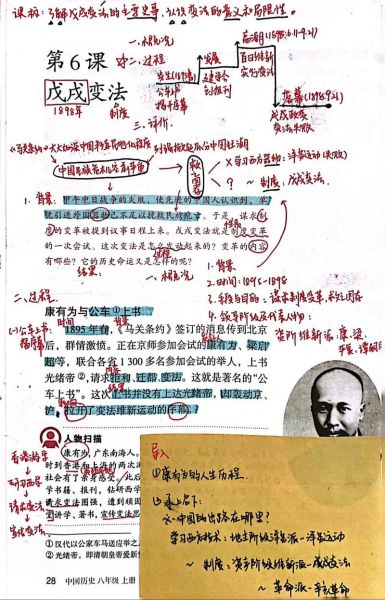 课标：了解戊戌变法的主要史事，认识变法的意义和局限性。
第6课
戊戌变法
1898年
制度
一、概况
二、过程
三、评价
发生(1895)
公车上书
揭开序幕
发展
高潮(1898.6.11-9.21)
百日维新
落幕(1898.9.21)
戊戌政变
变法失败
《马关条约》大大加深中国半殖民地化程度
救亡图存
×学习西方器物：洋务运动(失败)
？～制度：戊戌变法
1. 背景：
甲午中日战争的失败，使先进的中国人认识到，单
犹引进外国器物已不足以挽救民族危亡。于是，谋求制
度的变革被提到议事日程上来。戊戌变法就是制度变革
的一次尝试。这次变法是怎么发动起来的？变革的内容
有哪些？它的历史命运又是怎样的呢？
过程
结果：
一、概况
1. 背景
2. 时间：1895-1898
3. 目的：谋求制度变革，救亡图存
4. 领导阶级及代表人物：
资产阶级维新派：康、梁
二、过程
康有为与公车①上书
(一)公车上书：
揭开序幕
1895年春，《马关条约》签订的消息传到北京
后，群情激愤。正在京师参加会试的康有为、梁启
超等，联合各省1 300多名参加会试的举人，上书
光绪帝②，请求拒和、迁都、变法。这就是著名的“公
车上书”。这次上书并没有上达光绪帝，却轰动京、
沪，拉开了变法维新运动的序幕。
人物扫描
康有为，广东南海人。
时到香港和上海的两次
社会有了亲身感受，此后
学书籍、报刊，钻研西学
求变法图强，遭到顽
讲学、著书，宣传变法思
香港游学
↓
研习西学
↓
请求变法
↓
宣传变法思
① 汉代以公家车马送应举之
② 光绪帝，即清朝皇帝爱新
28 中国历史 八年级 上册
导入
①康有为的人生历程
②承上启下：
中国的出路在哪里？
学习西方技术：地主阶级洋务派—洋务运动
～制度：资产阶级维新派—戊戌变法
～革命派—辛亥革命